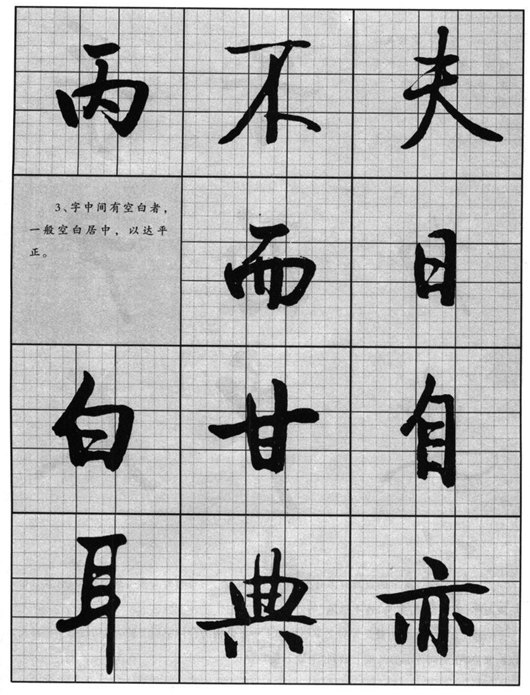 夫不丙
日而
3、字中间有空白者，
一般空白居中，以达平
正。
自甘白
亦典耳